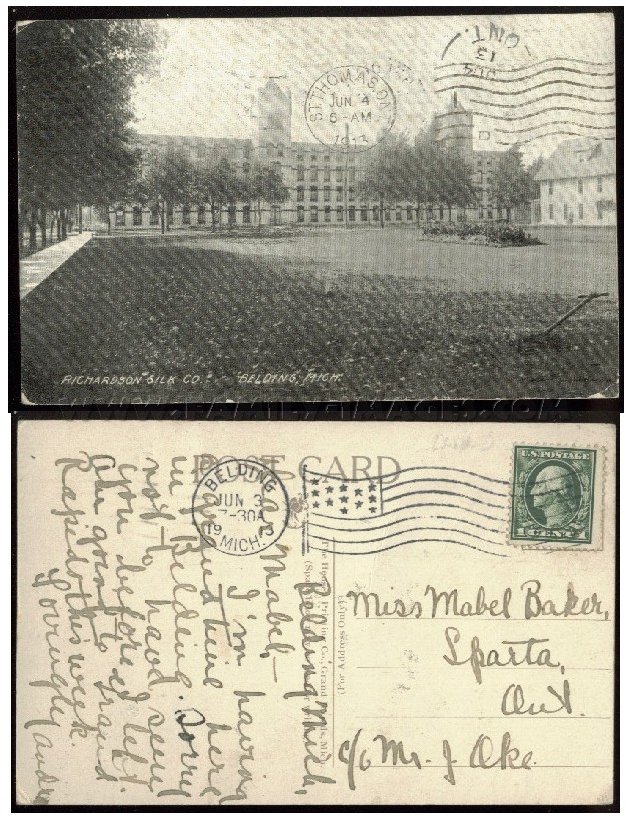 ONT.
13
ST. THOMAS, ON
JUN 4
6-AM
1913
RICHARDSON SILK CO. BELDING, MICH.
POST CARD
BELDING
JUN 3
7-30A
19 13
MICH.
U.S. POSTAGE
1 CENT 1
Belding, Mich,
Dear Mabel,—
I'm having
a fine time here
in Belding. Sorry
not to have seen
you before I left
Am going to Grand
Rapids this week.
Lovingly
(For Address Only)
Miss Mabel Baker,
Sparta,
Ont.
c/o Mr. J Oke.